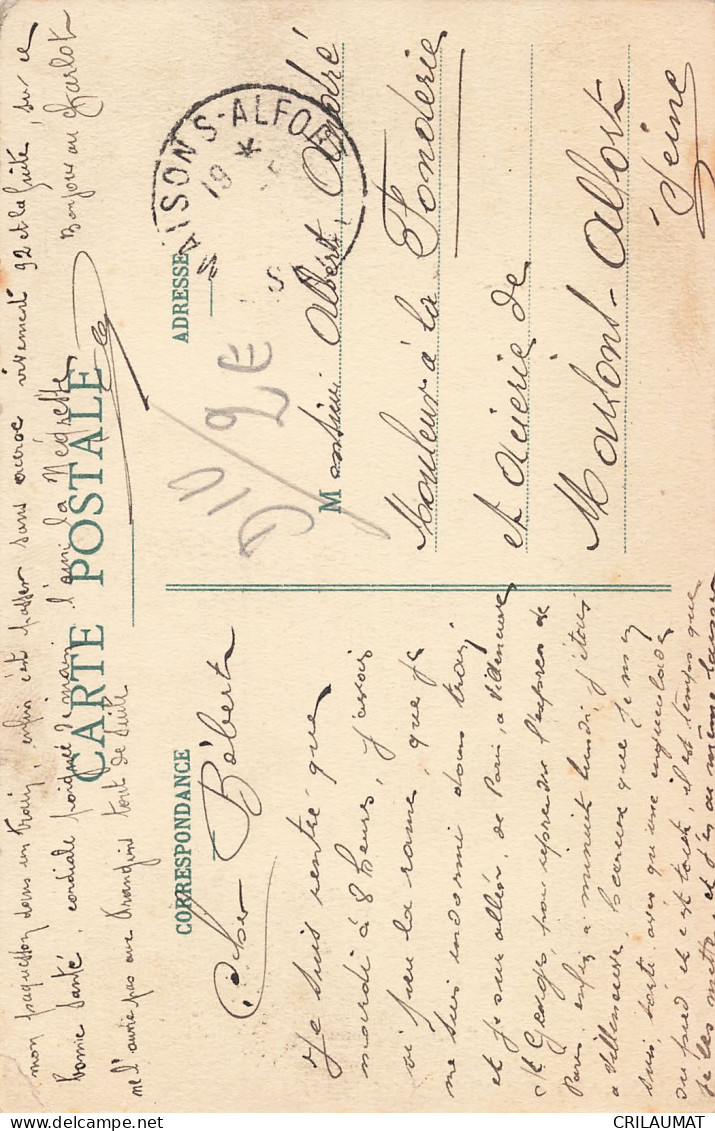 CARTE POSTALE
CORRESPONDANCE
ADRESSE
MAISONS-ALFORT
19 * 5
S
DIV/2E
Monsieur Albert André
Mouleur à la Fonderie
et Aciérie de
Maisons-Alfort
Seine
Cher Bébert
Je suis rentré que
mardi à 8 heures, j'avais
vu la rame, que je
me suis endormi dans train
et je suis allé, de Paris, a Villeneuve
St Georges, pour reprendre l'express de
Paris, enfin a minuit lundi j'étais
a Villeneuve, heureux que je m'en
suis sorti avec qu'une engueulade
au pied et c'est tout, il est temps que
je les mette, et j'ai même laissé
mon paquetton dans un train, enfin c'est passé sans accroc vivement 92 et la fuite, sur ce
bonne santé, cordiale poignée de main, l'ami la
ne l'aurai pas aux tout de suite
Bonjour au Charlot
CRILAUMAT